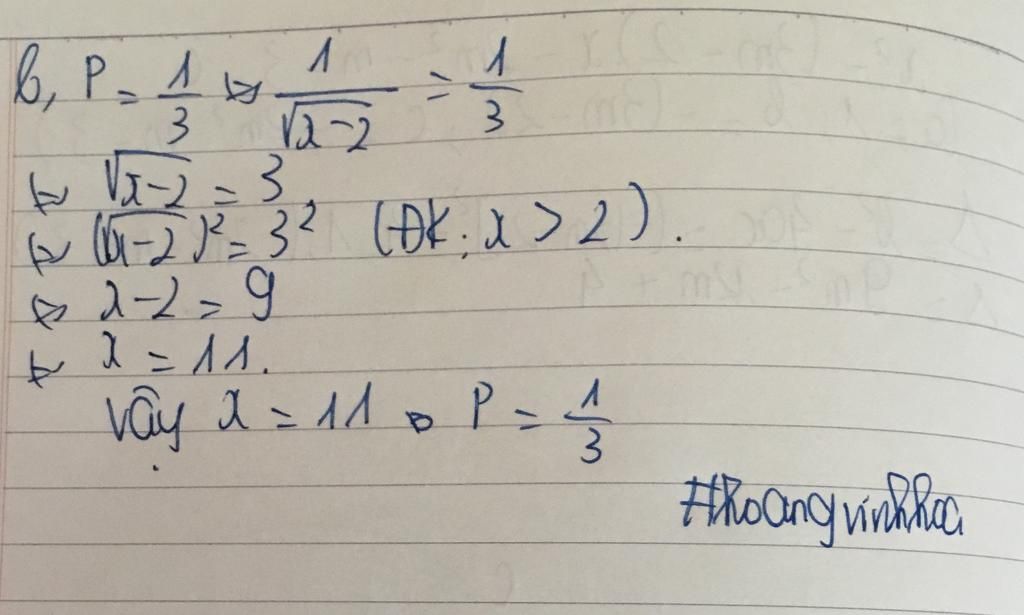 b, P = 1/3 ⇔ 1/√(x-2) = 1/3
⇔ √(x-2) = 3
⇔ (√(x-2))² = 3² (ĐK: x > 2).
⇔ x - 2 = 9
⇔ x = 11.
Vậy x = 11 ⇒ P = 1/3
#hoangvinhhoa